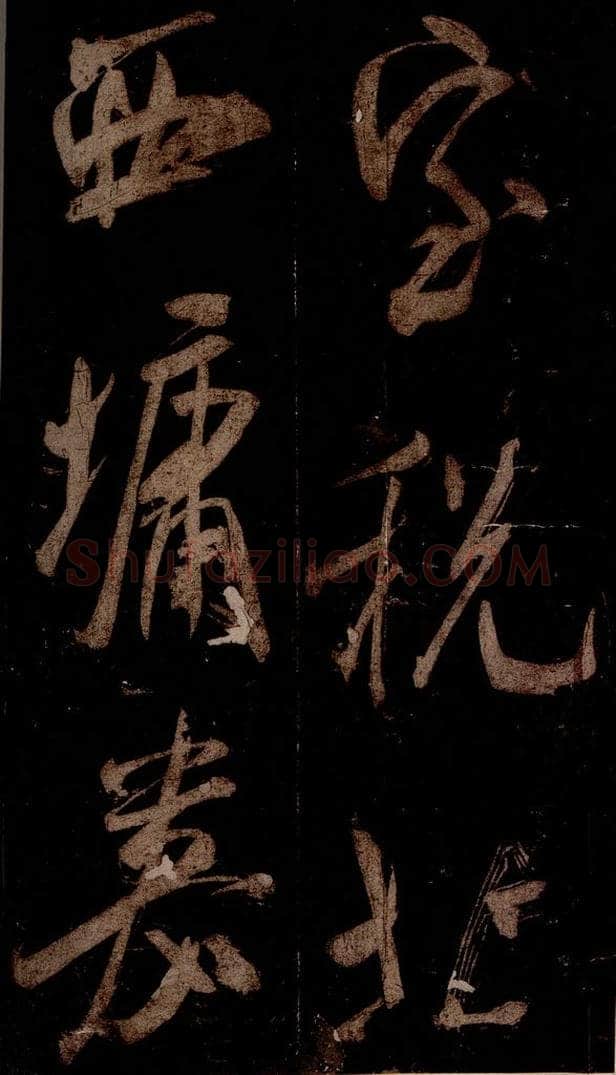 室税北
西墉
Shufaziliao.COM